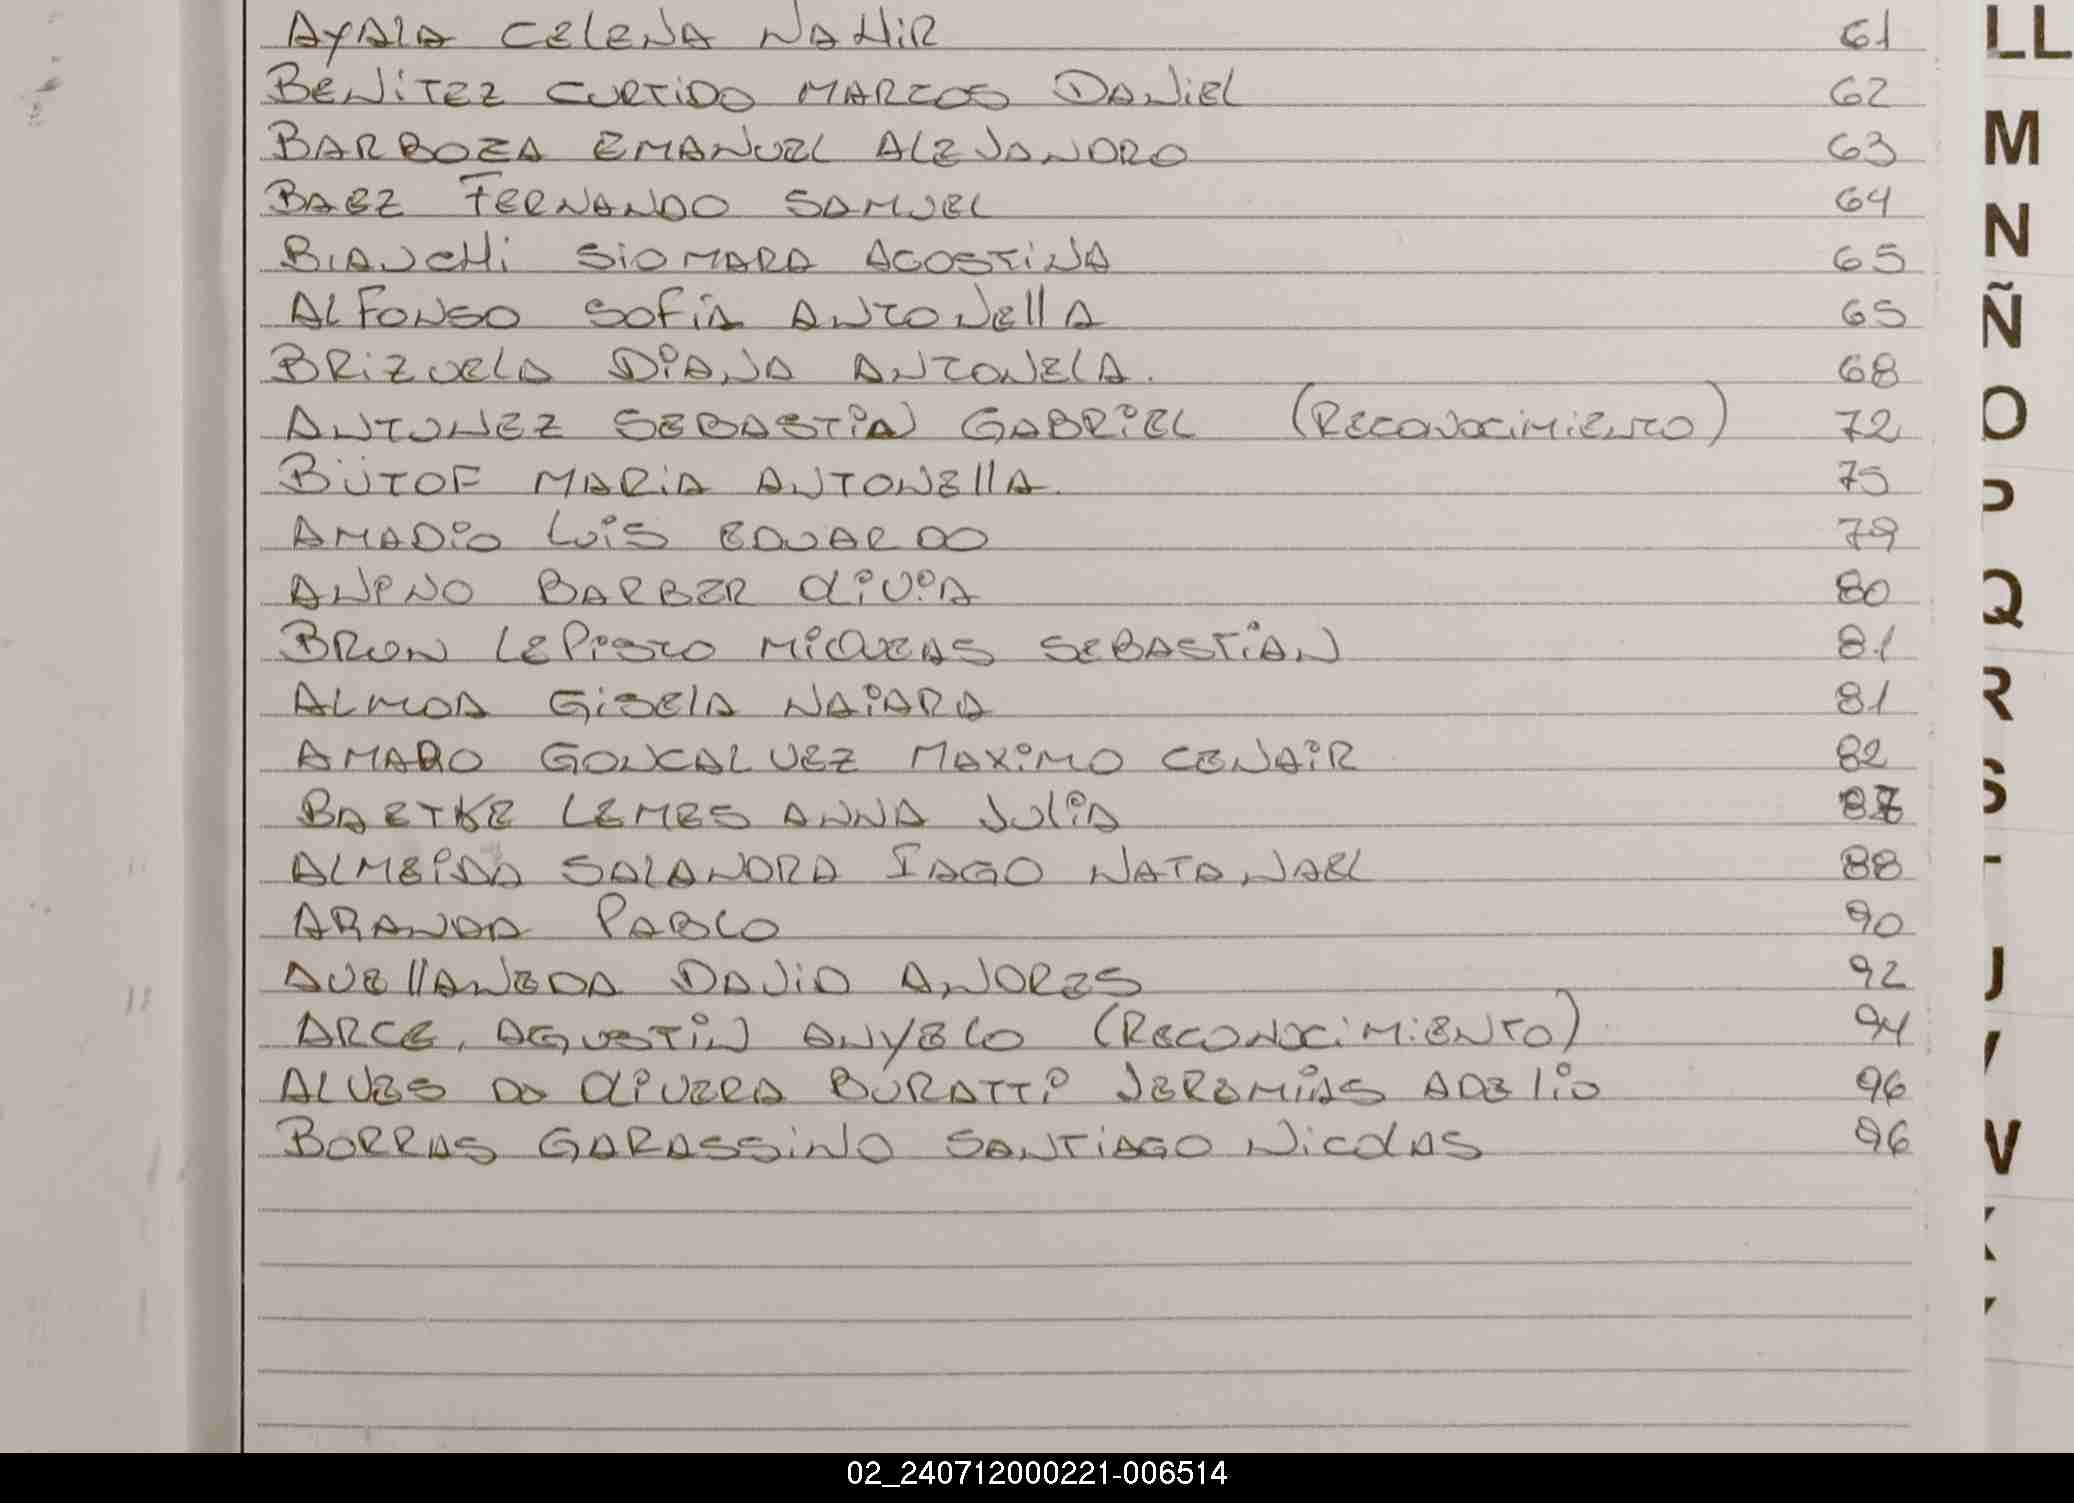 AYALA CELENA NAHIR 61
BENITEZ CURTIDO MARCOS DANIEL 62
BARBOZA EMANUEL ALEJANDRO 63
BAEZ FERNANDO SAMUEL 64
BIANCHI SIOMARA AGOSTINA 65
ALFONSO SOFIA ANTONELLA 65
BRIZUELA DIANA ANTONELA. 68
ANTUNEZ SEBASTIAN GABRIEL (RECONOCIMIENTO) 72
BÜTOF MARIA ANTONELLA. 75
AMADIO LUIS EDUARDO 79
BARBER OLIVIA 80
BRON LEPISTO MIQUEAS SEBASTIAN 81
ALMOA GISELA NAIARA 81
AMARO GONCALVEZ MAXIMO CENAIR 82
BAETKE LEMES ANNA JULIA
ALMEIDA SALANDRA IAGO NATANAEL 88
ARANDA PABLO 90
AVELLANEDA DAVID ANDRES 92
ARCE, AGUSTIN ANYELO (RECONOCIMIENTO) 94
ALVES DO OLIVERA BURATTI JEREMIAS ADELIO 96
BORRAS GARASSINO SANTIAGO NICOLAS 96
LL
M
N
Ñ
O
P
Q
R
S
T
J
V
W
02_240712000221-006514